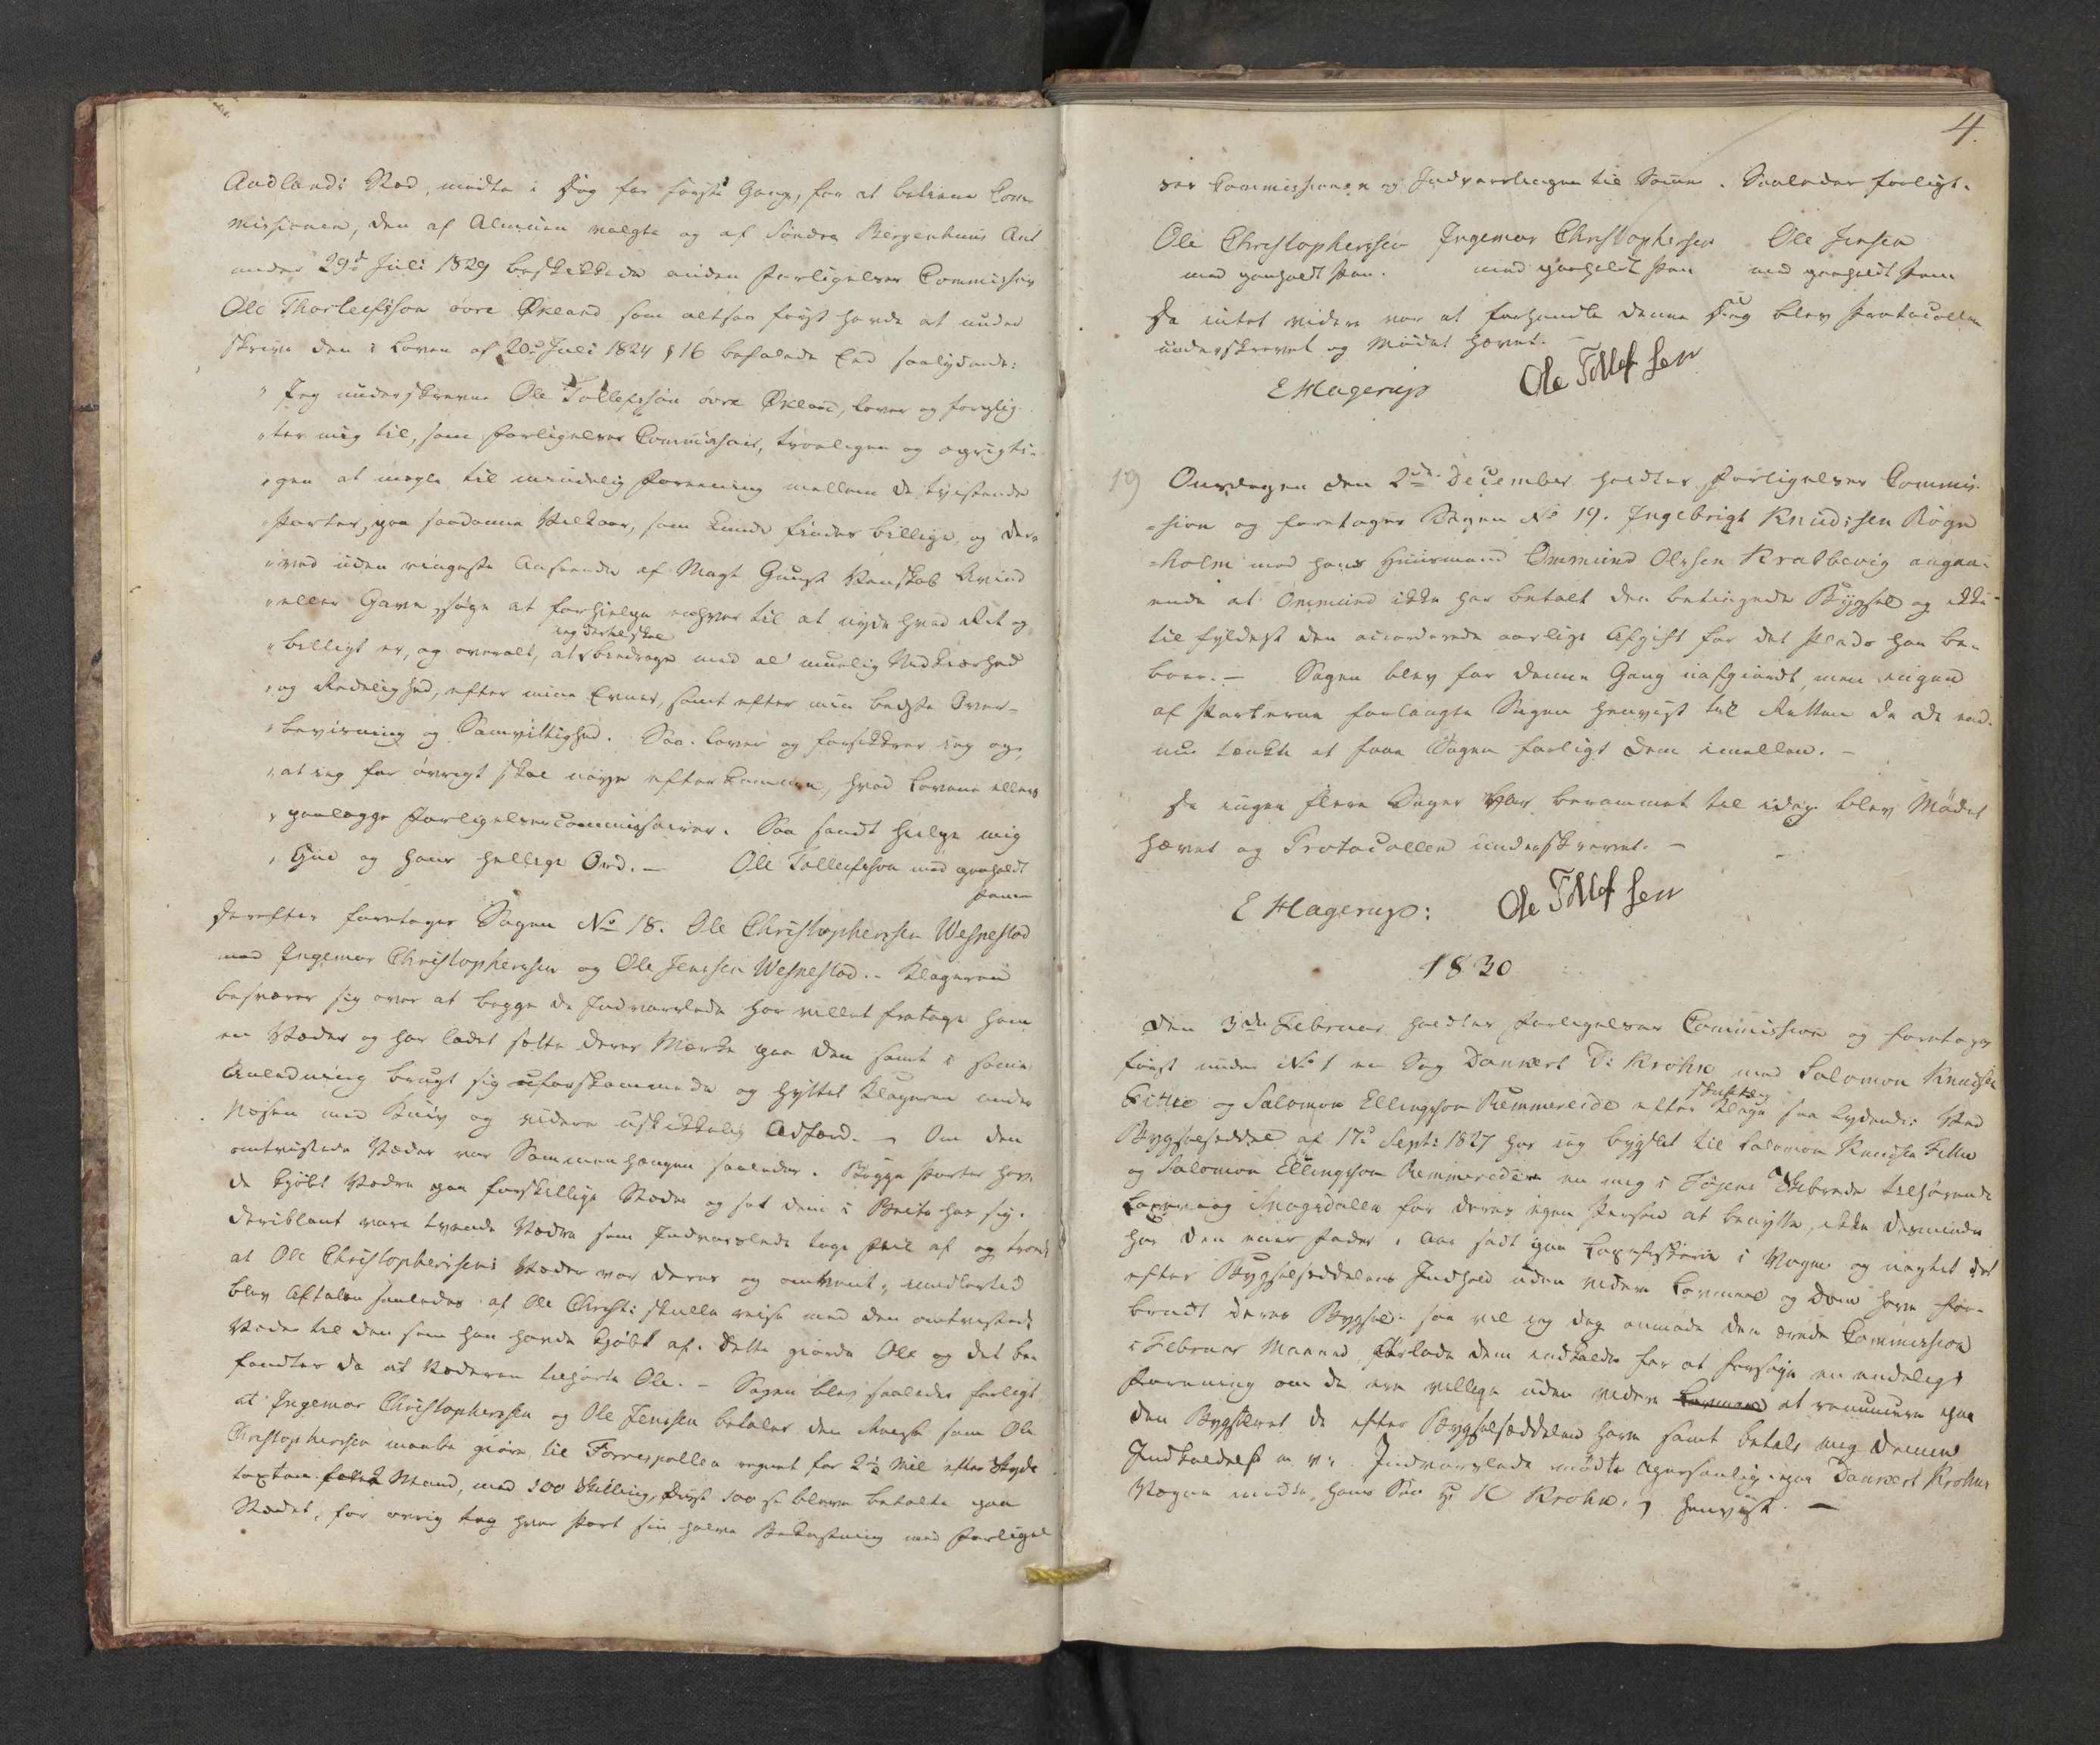 Aadlands Stad, mödte i Dag for förste Gang, for at betiene Com-
missionen, den af Almuen valgte og af Söndre Bergenhuus Amt
under 29d Juli 1829 beskikkede anden Forligelses Commissair
Ole Thorleifsson övre Økland som altsaa först havde at under
skrive den i Loven af 20d Juli 1824 § 16 befalede Eed saalydende:
"Jeg underskrevne Ole Tollefsson övre Økland, lover og forplig-
"ter mig til, som Forligelses Commissair, troeligen og oprigti-
"gen at megle til mindelig Forening mellem de tvistende
"Parter, paa saadanne Vilkaar, som kunde findes billige, og der-
"ved uden ringeste Anseende af Magt Gunst Venskab Avind
"eller Gave, söge at forhielpe enhver til at nyde hvad Ret og
jeg derhos skal
"billigt er, og overalt, at bidrage med al muelig Nidkierhed
"og Redelighed, efter mine Evner, samt efter min bedste Over-
"beviisning og Samvittighed. Saa lover og forsikkrer jeg og,
"at jeg for övrigt skal nöye efterkomme, hvad Lovene ellers
"paalægge Forligelsescommissairer. Saa sandt hielpe mig
"Gud og hans hellige Ord. — Ole Tollefsson med paaholdt
Pen
Derefter foretages Sagen No 18. Ole Christophersen Wespestad
mod Ingemar Christophersen og Ole Jensen Wespestad. - Klageren
besværer sig over at begge de Indvarslede har villet fratage ham
en Væder og har ladet sætte deres Mærke paa den samt i samme
Anledning brugt sig uforskammede og hyttet Klageren under
Nösen med Kniv og videre uskikkelig Adfærd. - Om den
omtvistede Væder var Sammenhængen saaledes. Begge Parter hav-
de kjöbt Vædre paa forskiellige Stæder og sat dem i Beite hos sig.
deriblant vare tvende Vædre som Indvarslede tog feil af og troede
at Ole Christophersens Væder var deres og omvent, imidlertid
blev Aftalen saaledes at Ole Christ: skulle reise med den omtvistede
Væder til den som han havde kjöbt af. Dette giorde Ole og det be-
fandtes da at Væderen tilhörte Ole. - Sagen blev saaledes forligt
at Ingemar Christophersen og Ole Jensen betaler den Reise som Ole
Christophersen maatte giöre til Forrespollen regnet for 2½ Miil efter Skyds
taxten for 2 Mand, med 100 Skilling, disse 100 s bleve betalte paa
Stædet, for övrig tog hver Part sin halve Bekostning med Forligel
4.
ses Commissionen og Indvarslingen til Samme. Saaledes forligt.
Ole Christophersen Ingemar Christophersen Ole Jensen
med paaholdt Pen. med paaholdt Pen med paaholdt Pen
Da intet videre var at forhandle denne Dag blev Protocollen
underskrevet og Mödet hævet. -
E Hagerup Ole Tollefsen
19) Onsdagen den 2den December holdtes Forligelses Commis-
-sion og foretages Sagen No 19. Ingebrigt Knudsen Rögn
-holm mod hans Huusmand Ommund Olsen Krabbevig angaa-
ende at Ommund ikke har betalt den betingede Bygsel og ikke
til fyldest den accorderede aarlige Afgift for det Plads han be-
boer. - Sagen blev for denne Gang uafgiordt, men ingen
af Parterne forlangte Sagen henviist til Retten da de end-
nu tænkte at faae Sagen forligt dem imellem. -
Da ingen flere Sager var berammet til idag blev Mödet
hævet og Protocollen underskrevet. -
E Hagerup: Ole Tollefsen
1830
Den 3de Februar holdtes Forligelses Commission og foretages
först under No 1 en Sag Danckert D: Krohn mod Salomon Knudsen
skriftlig
Fitie og Salomon Ellingsson Remmereide efter Klage saa lydende: Ved
Bygselseddel af 17d Sept: 1827 har jeg bygslet til Salomon Knudsen Fitie
og Salomon Ellingsson Remmereide en mig i Föyens Skibrede tilhörende
Laxevaag Snogsdallen for deres egen Person at benytte, ikke desmindre
har den enes Fader i Aar sadt paa Laxefiskerie i Vaagen og nægtet det
efter Bygselseddelens Indhold uden videre Lovmaal og Dom have for-
brudt deres Bygsel. saa vil jeg dog anmode den ærede Commission
i Februar Maaned at lade dem indkalde for at forsöge en endelig
Forening om de ere villige uden videre Lovmaal at renuncere paa
den Bygselret de efter Bygselseddelen have samt betale mig denne
Indkaldelse m. v: Indvarslede mödte personlig paa Danckert Krohns
Vegne mödte hans Sön Hr H Krohn, henviist. -